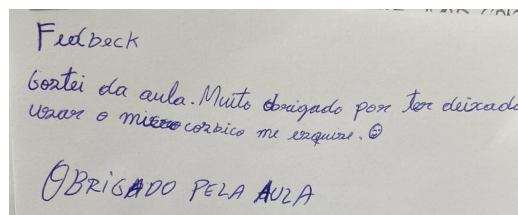 Fedbeck
Goztei da aula. Muito obrigado por ter deixado
uzar o micro cozbico me ezquize. ☺
OBRIGADO PELA AULA